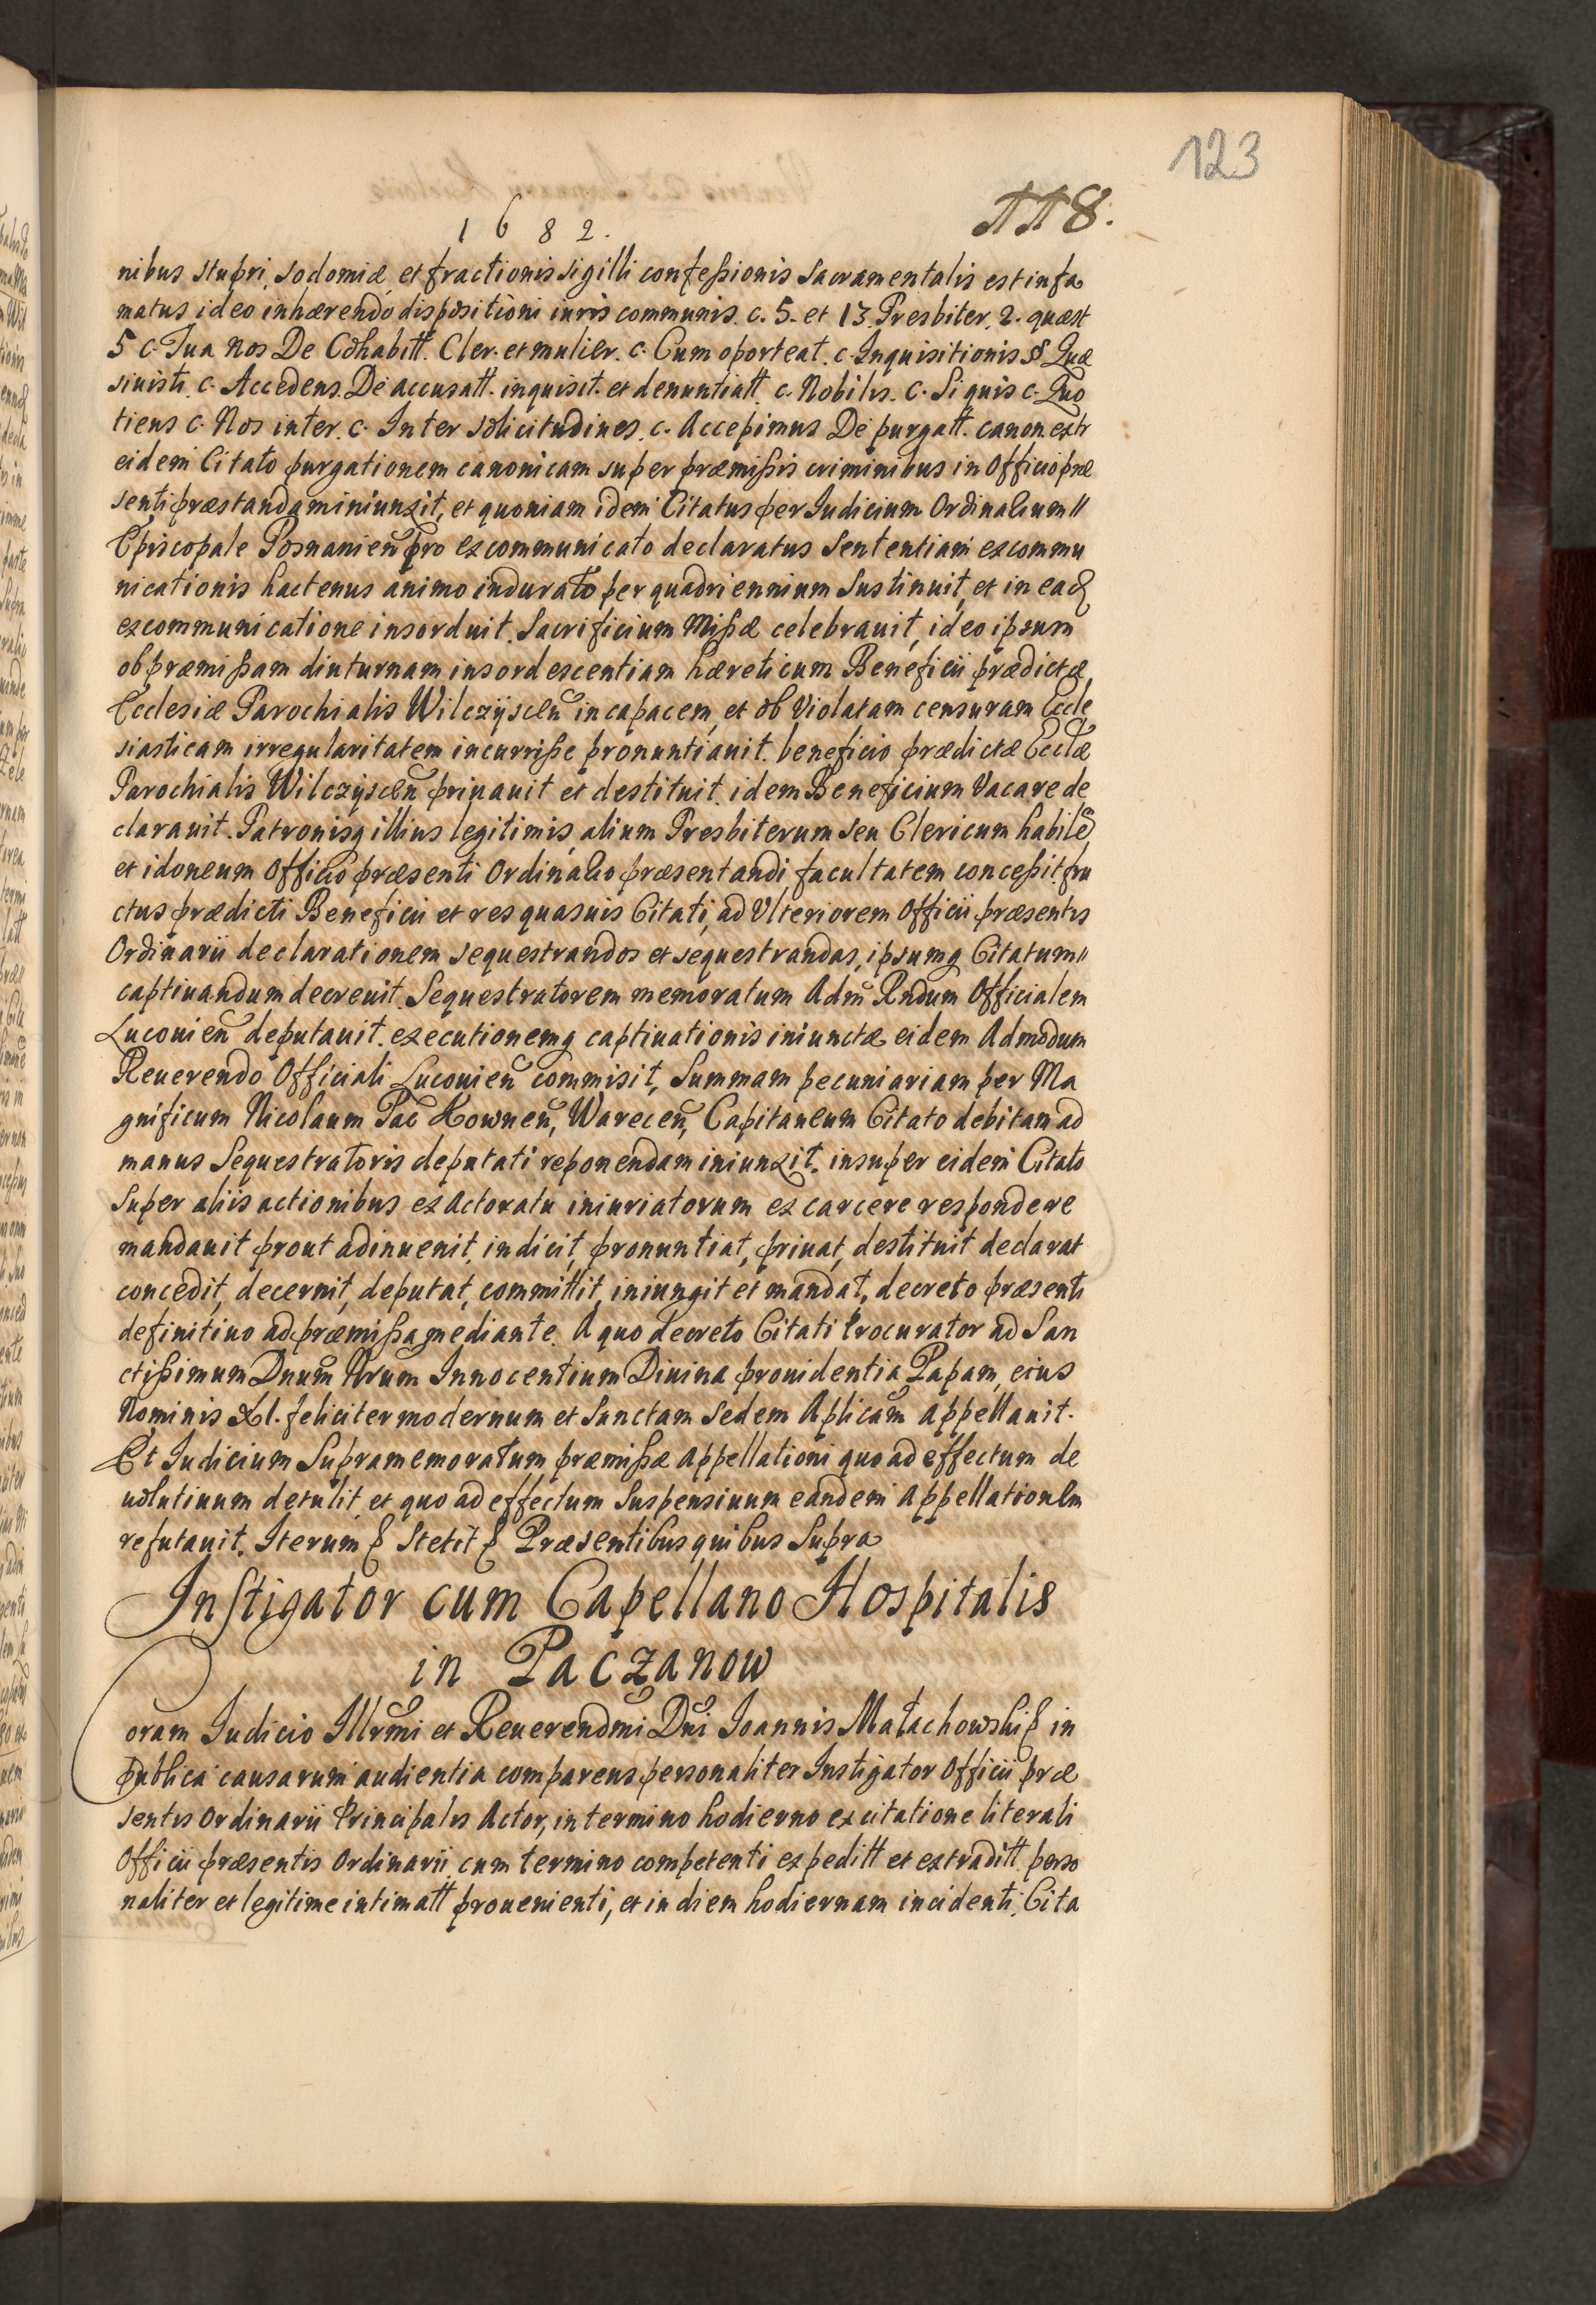 123
118.
1682.
nibus stupri, sodomiæ, et fractionis sigilli confeßionis Sacramentalis est infa
matus ideo inhærendo dispositioni iuris communis. c. 5. et 13. Presbiter. 2. quæst
5 c. Tua Nos De Cohabitt. Cler. et mulier. c. Cum oporteat. c. Inquisitionis §§ Quæ
siuisti. c. Accedens. De accusatt. inquisit. et denuntiatt. c. Nobilis. c. Si quis c. Quo
tiens c. Nos inter. c. Inter solicitudines. c. Accepimus De purgatt. canon. extr
eidem Citato purgationem canonicam super præmißis criminibus in Officio præ
senti præstandam iniunxit, et quoniam idem Citatus per Iudicium Ordinarium
Episcopale Posnanien pro excommunicato declaratus Sententiam excommu
nicationis hactenus animo indurato per quadriennium Sustinuit, et in eadem
excommunicatione insorduit. Sacrificium Mißæ celebrauit, ideo ipsum
ob præmißam diuturnam insordescentiam hæreticum Beneficii prædictæ
Ecclesiæ Parochialis Wilczyscen incapacem, et ob Violatam censuram Eccle
siasticam irregularitatem incurriße pronuntiauit. beneficio prædictæ Ecclæ
Parochialis Wilczyscen priuauit et destituit. idem Beneficium Vacare de
clarauit. Patronisq illius legitimis, alium Presbiterum seu Clericum habile
et idoneum Officio præsenti Ordinario præsentandi facultatem conceßit. fru
ctus prædicti Beneficii et res quasuis Citati, ad Ulteriorem Officii præsentis
Ordinarii declarationem sequestrandos et sequestrandas, ipsumq Citatum
captiuandum decreuit. Sequestratorem memoratum Adm Rndum Officialem
Lucouien deputauit. executionemq captiuationis iniunctæ eidem Admodum
Reuerendo Officiali Lucouien commisit, Summam pecuniariam per Ma
gnificum Nicolaum Pac Kownen, Warecen, Capitaneum Citato debitam ad
manus Sequestratoris deputati reponendam iniunxit. insuper eidem Citato
Super aliis actionibus ex Actoratu iniuriatorum ex carcere respondere
mandauit prout adinuenit, indicit, pronuntiat, priuat, destituit declarat
concedit, decernit, deputat, committit, iniungit et mandat, decreto præsenti
definitiuo ad præmißa mediante. A quo decreto Citati Procurator ad San
ctißimum Dnum Nrum Innocentium Diuina prouidentia Papam, eius
Nominis XI. feliciter modernum et Sanctam Sedem Aplicam Appellauit.
Et Iudicium Supramemoratum præmißæ Appellationi quo ad effectum de
uolutiuum detulit, et quo ad effectum Suspensiuum eandem Appellationem
refutauit. Iterum & Stetit & Præsentibus quibus Supra
Instigator cum Capellano Hospitalis
in Paczanow
Coram Iudicio Illrmi et Reuerendmi Dni Ioannis Małachowski & in
publica causarum audientia comparens personaliter Instigator Officii præ
sentis Ordinarii Principalis Actor, in termino hodierno ex citatione literali
Officii præsentis Ordinarii cum termino competenti expeditt et extraditt. perso
naliter et legitime intimatt prouenienti, et in diem hodiernam incidenti. Cita